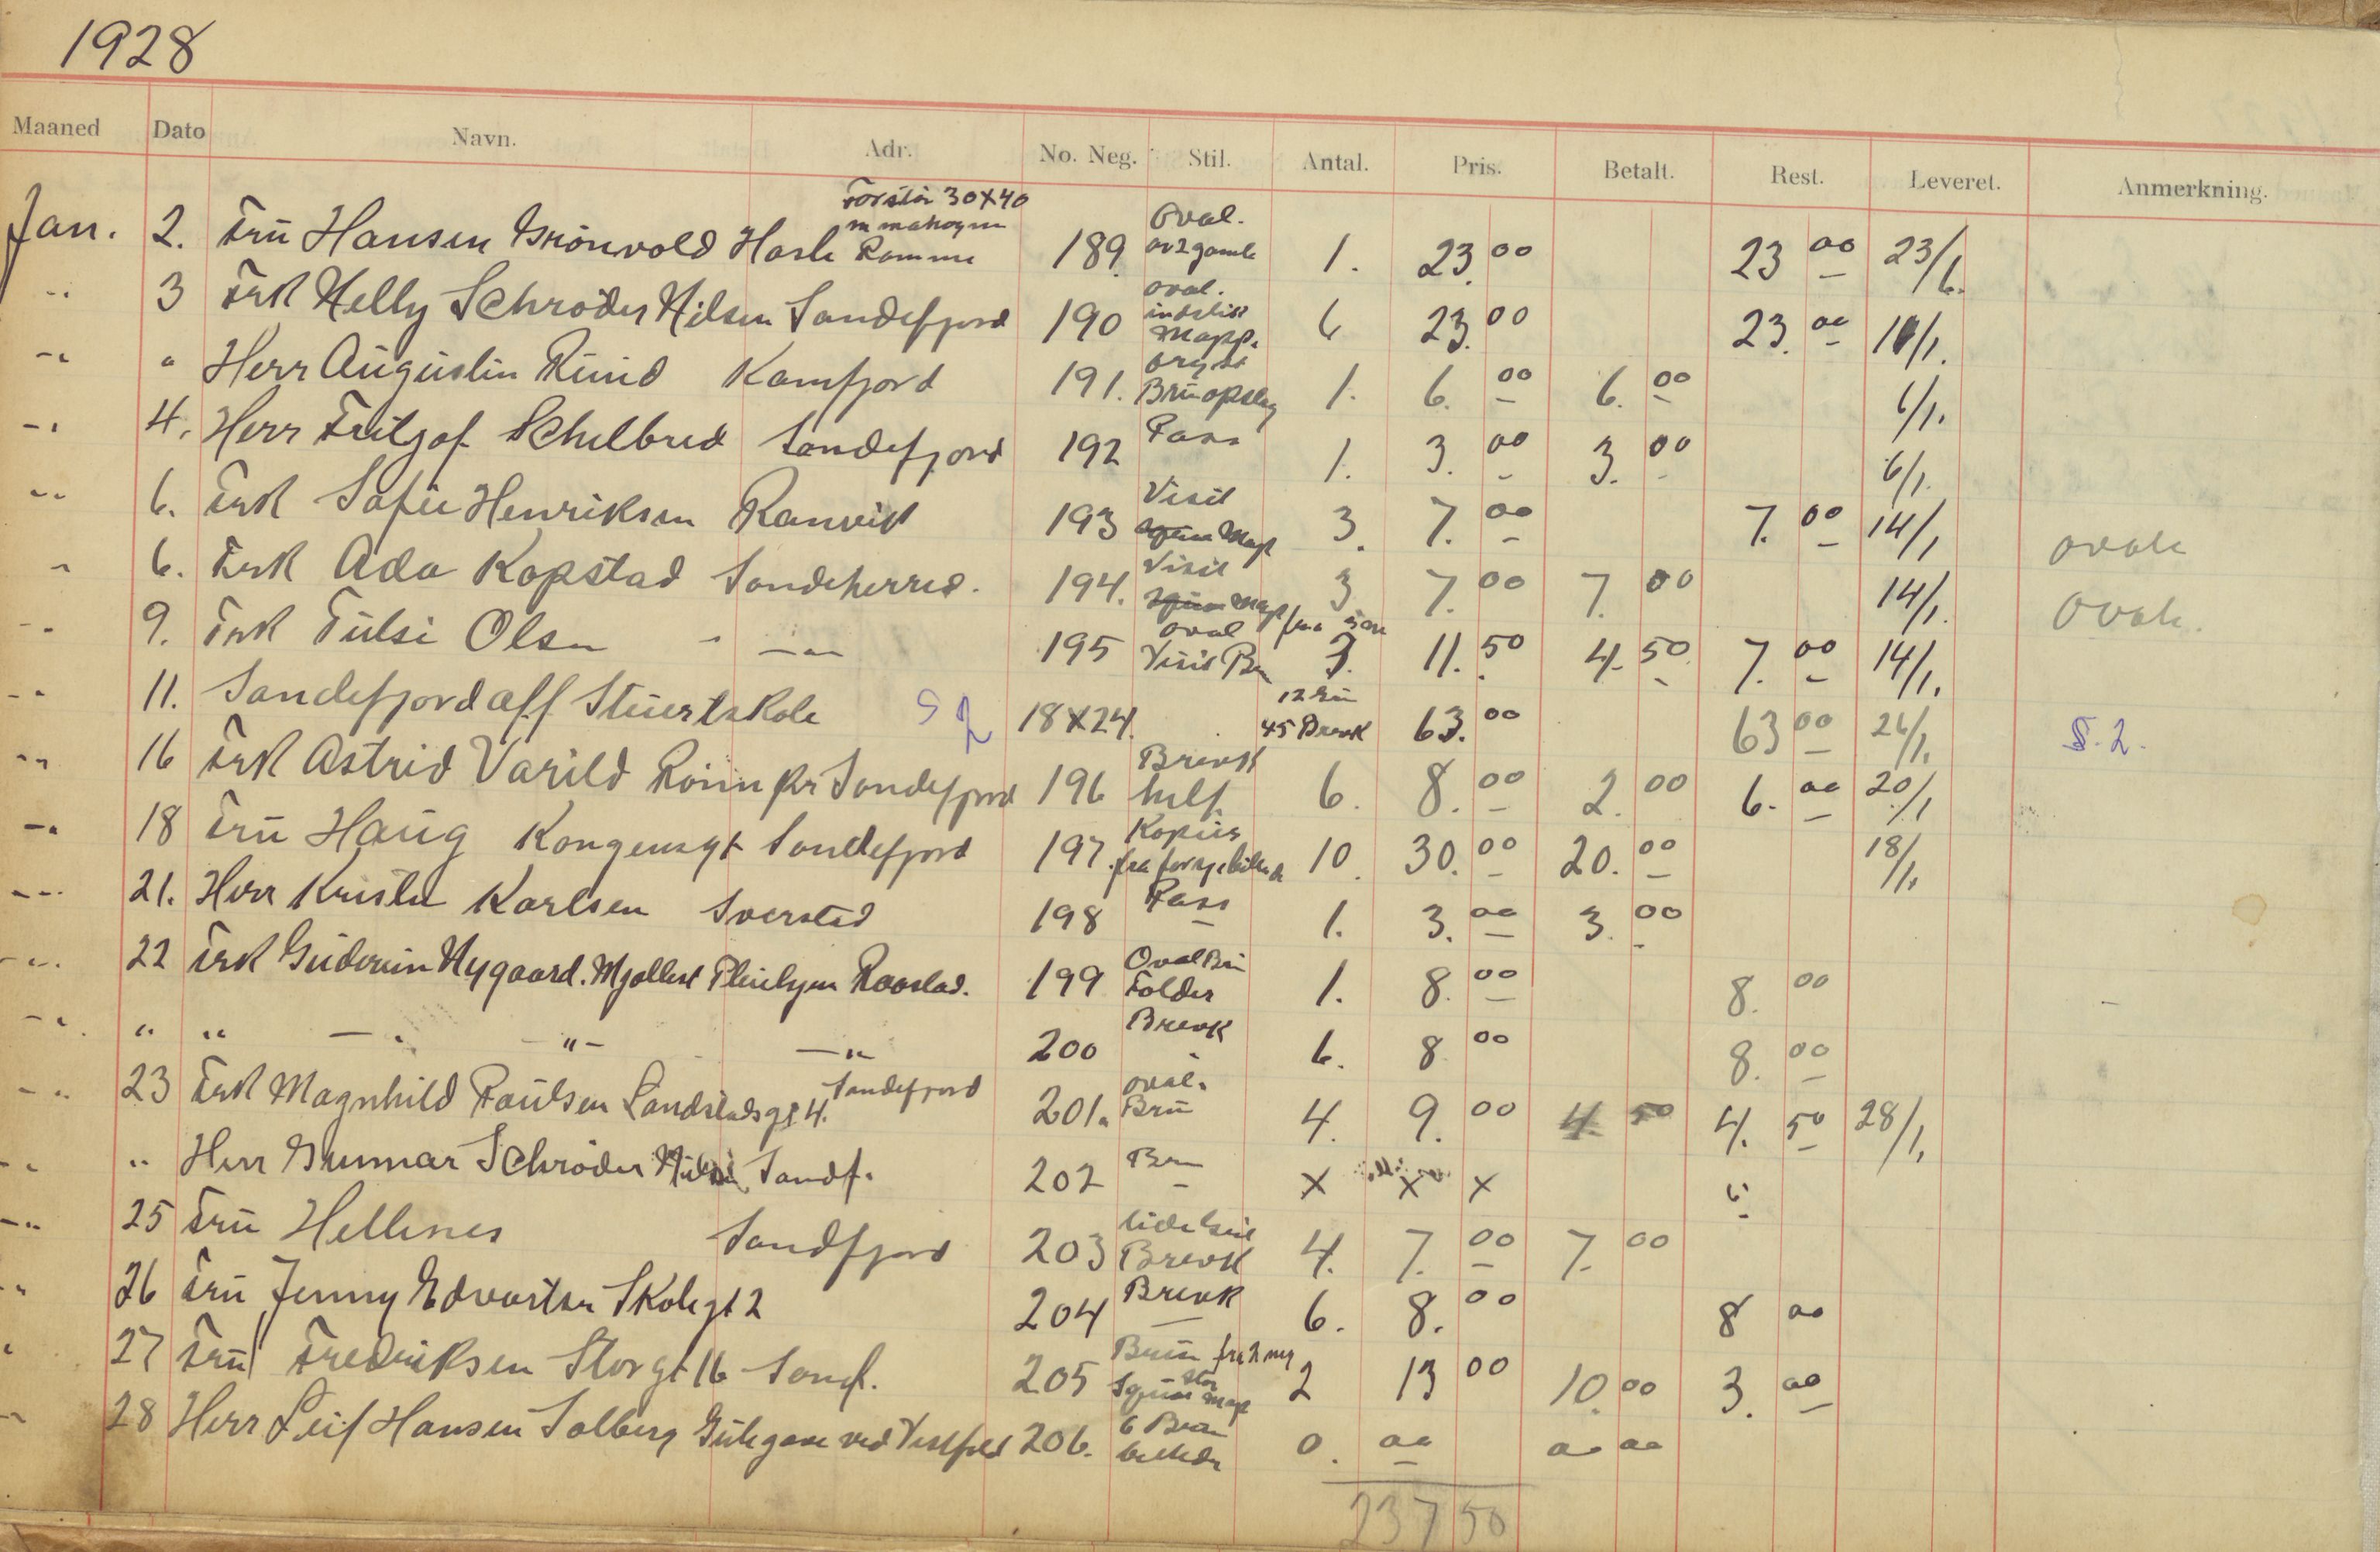 1928
Maaned Dato Navn. Adr. No. Neg. Stil. Antal. Pris. Betalt. Rest. Leveret. Anmerkning.
Forstör 30x40
m mahogni
Jan. 2. Frü Hansen Grönvold Hasle Ramme 189. Oval. av 2 gamle 1. 23.00 23 00 23/1.
" 3 Frk Nelly Schröder Nilsen Sandefjord 190 oval. Mapp. 6 23.00 23.00 10/1.
" " Herr Aügüstin Rüüd Kamfjord 191. Brünopslag 1. 6.00 6.00 6/1.
" 4. Herr Fritjof Schelbred Sandefjord 192 Pass 1. 3.00 3.00 6/1
" 6. Frk Sofie Henriksen Ranvik 193 Visit Map 3. 7.00 7.00 14/1 ovale
" 6. Frk Ada Kopstad Sandeherred. 194. Visit Map 3 7.00 7.00 14/1. Ovale.
" 9. Frk Fülsi Olsen " — " — 195 oval Visit Brn 3. 11.50 4.50 7.00 14/1.
" 11. Sandefjord aff Stüertskole S 2 18x24. 45 Brevk 63.00 63 00 26/1. S. 2.
" 16 Frk Astrid Varild pr Sandefjord 196 Brevk helf. 6. 8.00 2.00 6.00 20/1
" 18 Frü Haüg Kongensgt Sandefjord 197. Kopier 10. 30.00 20.00 18/1.
" 21. Herr Kristen Karlsen Sverstad 198 Pass 1. 3.00 3.00
" 22 Frk Güdrün Nygaard. Raastad. 199 Oval Brü Folder 1. 8.00 8.00
" " " — " — " — " 200 Brevk 6. 8 00 8.00
" 23 Frk Magnhild Paülsen Landstadsgt 4. Sandefjord 201. oval. Brü 4. 9.00 4 50 4.50 28/1,
" " Herr Günnar Schröder Nilsen Sandf. 202 Brn x x x
" 25 Frü Hellenes Sandfjord 203 Brevk 4. 7.00 7.00
" 26 Frü Jenny Edvartsen Skolegt 2 204 Brevk 6. 8.00 8 00
" 27 Frü Fredriksen Storgt 16 Sandf. 205 Brün fra 2 neg stor Map 2 13 00 10.00 3.00
" 28 Herr Leif Hansen Solberg ved Vestfold 206. 6 Brün billeder 0. 00 00 00
237 50